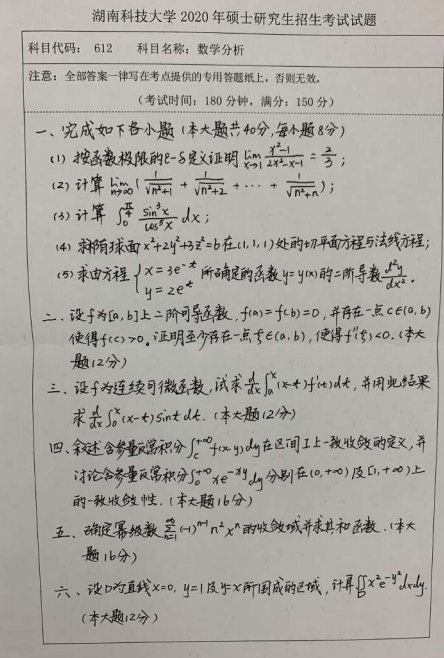 湖南科技大学 2020 年硕士研究生招生考试试题
科目代码： 612 科目名称：数学分析
注意：全部答案一律写在考点提供的专用答题纸上，否则无效。
（考试时间：180 分钟，满分：150 分）
一、完成如下各小题（本大题共40分，每小题8分）
(1) 按函数极限的ε-δ定义证明 lim_{x→1} (x²-1)/(2x²-x-1) = 2/3；
(2) 计算 lim_{n→∞} (1/√(n²+1) + 1/√(n²+2) + ··· + 1/√(n²+n))；
(3) 计算 ∫_0^{π/4} sin³x/cos⁵x dx；
(4) 求椭球面 x²+2y²+3z²=6在(1,1,1)处的切平面方程与法线方程；
(5) 求由方程 { x=3e^{-t} y=2e^t 所确定的函数y=y(x)的二阶导数 d²y/dx².
二、设f为[a,b]上二阶可导函数，f(a)=f(b)=0，并存在一点c∈(a,b)
使得f(c)>0。证明至少存在一点ξ∈(a,b)，使得f''(ξ)<0.（本大
题12分）
三、设f为连续可微函数，试求 d/dx ∫_a^x (x-t)f'(t)dt，并用此结果
求 d/dx ∫_0^x (x-t)sint dt.（本大题12分）
四、叙述含参量反常积分∫_c^{+∞} f(x,y)dy在区间I上一致收敛的定义，并
讨论含参量反常积分∫_0^{+∞} xe^{-xy}dy分别在(0,+∞)及[1,+∞)上
的一致收敛性.（本大题16分）
五、确定幂级数 ∑_{n=1}^∞ (-1)^{n-1} n² xⁿ的收敛域并求其和函数.（本大
题16分）
六、设D为直线x=0, y=1及y=x所围成的区域，计算∬_D x²e^{-y²}dxdy.
（本大题12分）